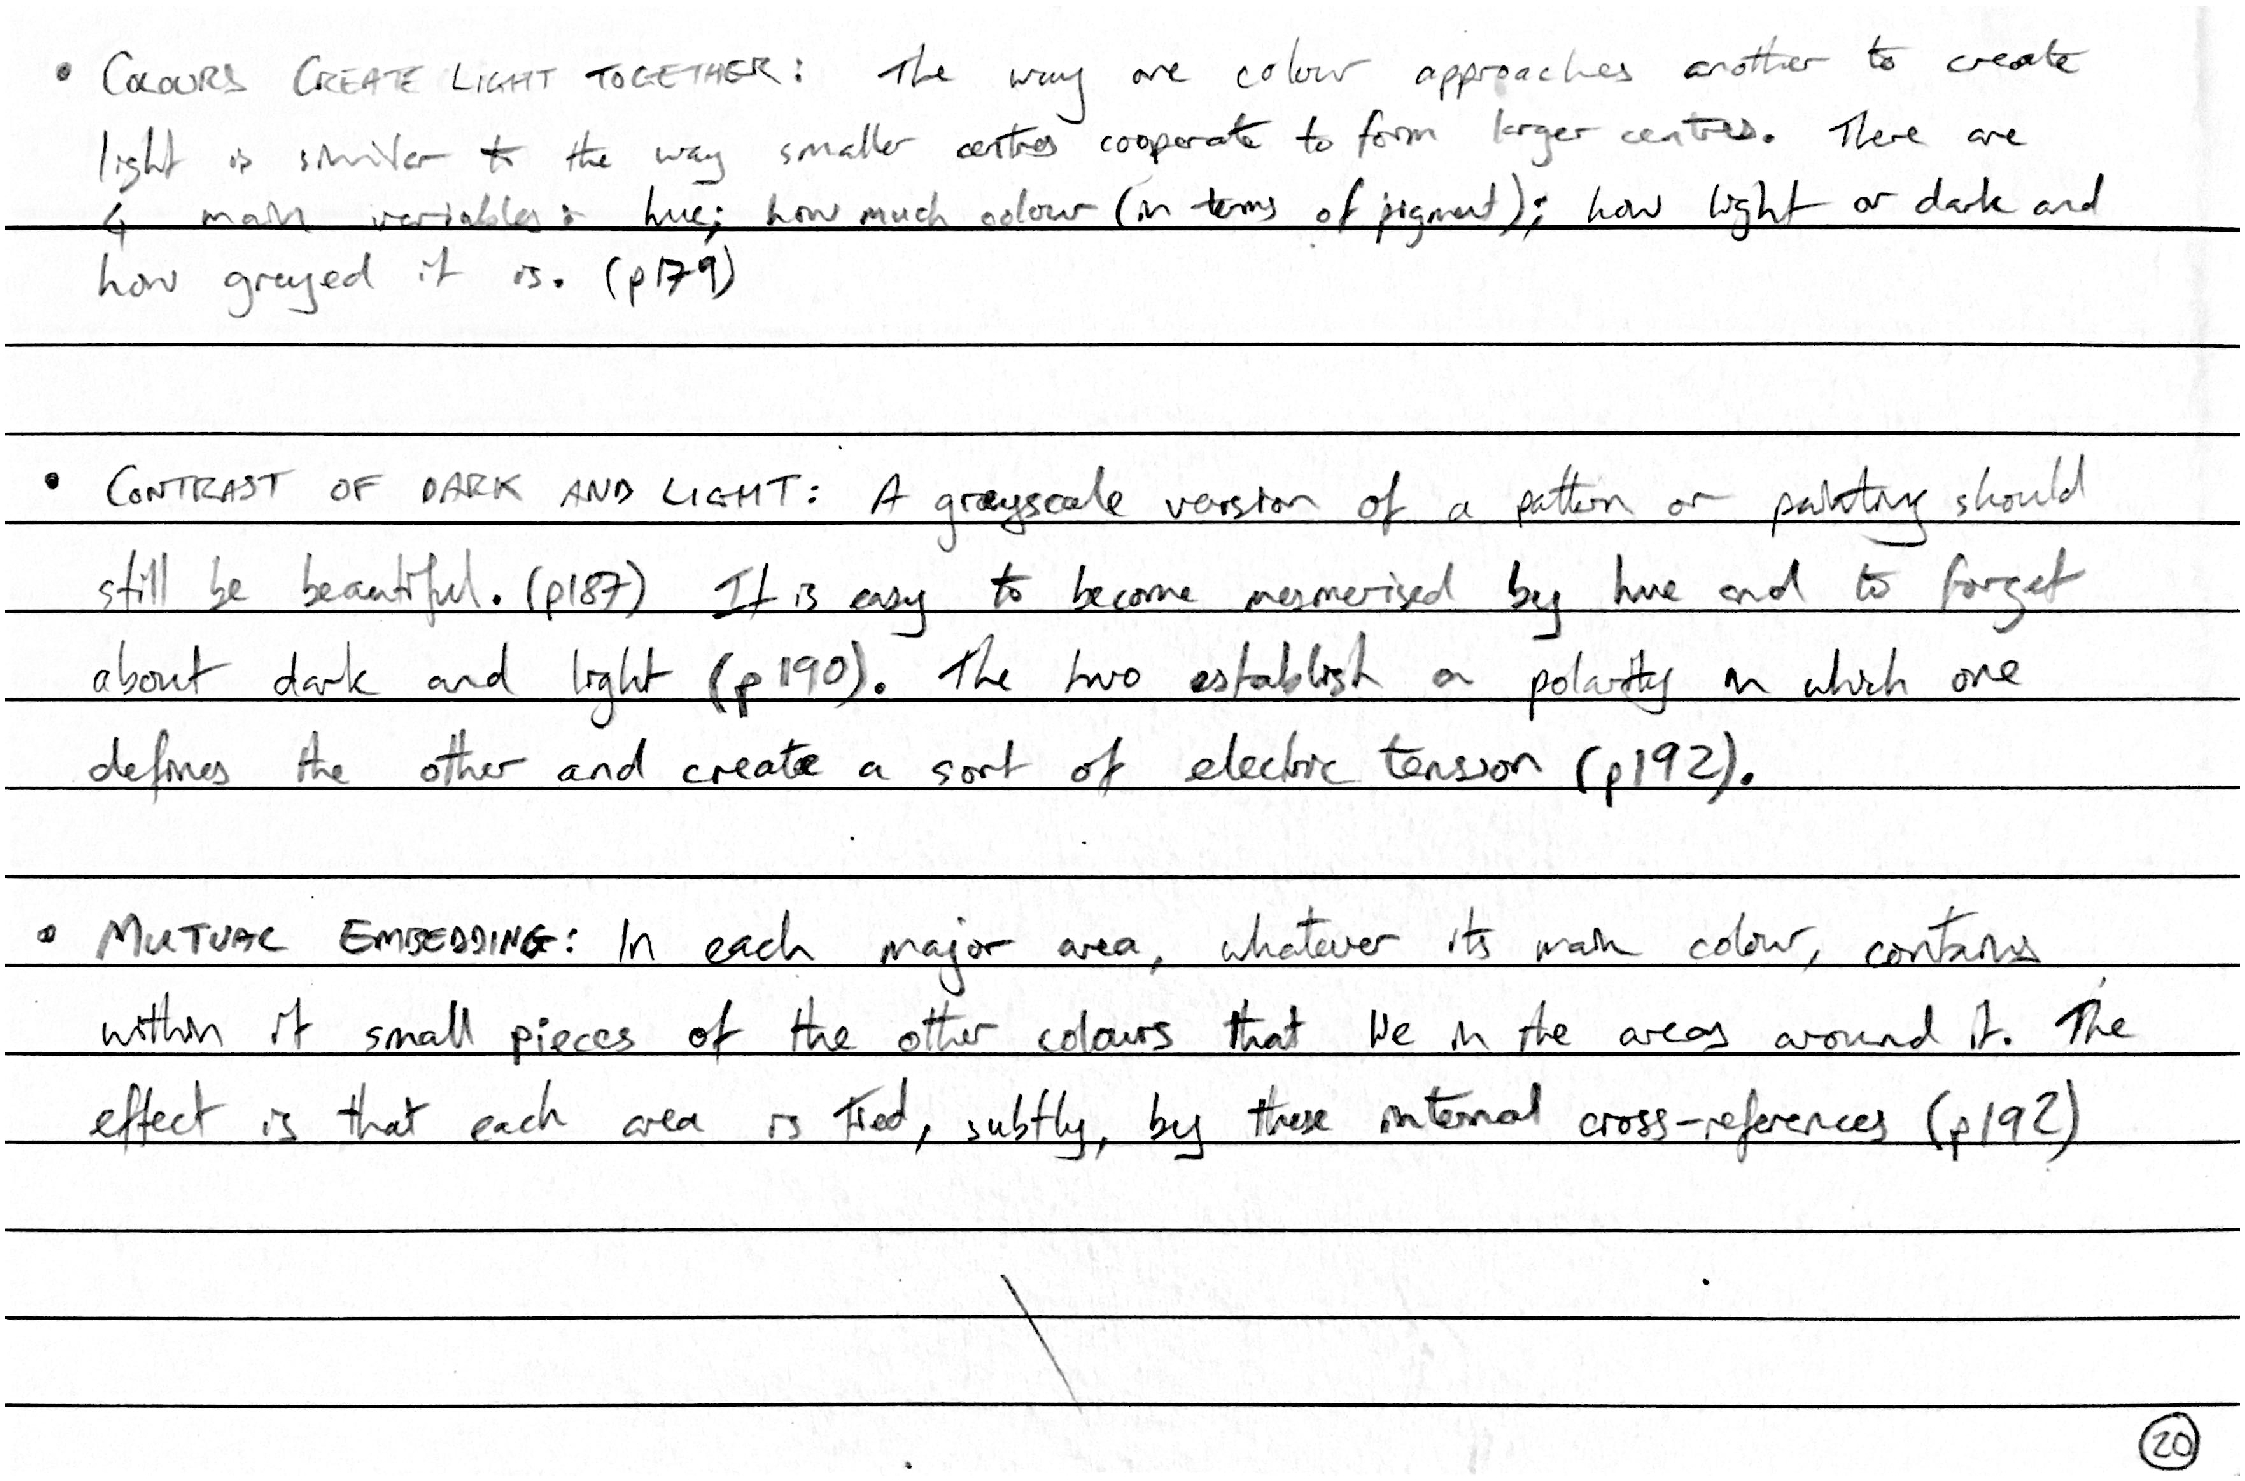 • COLOURS CREATE LIGHT TOGETHER: The way one colour approaches another to create
light is similar to the way smaller centres cooperate to form larger centres. There are
4 main variables: hue; how much colour (in terms of pigment); how light or dark and
how greyed it is. (p179)
• CONTRAST OF DARK AND LIGHT: A grayscale version of a pattern or painting should
still be beautiful. (p187) It is easy to become mesmerised by hue and to forget
about dark and light (p190). The two establish a polarity in which one
defines the other and create a sort of electric tension (p192).
• MUTUAL EMBEDDING: In each major area, whatever its main colour, contains
within it small pieces of the other colours that lie in the areas around it. The
effect is that each area is tied, subtly, by these internal cross-references (p192)
20